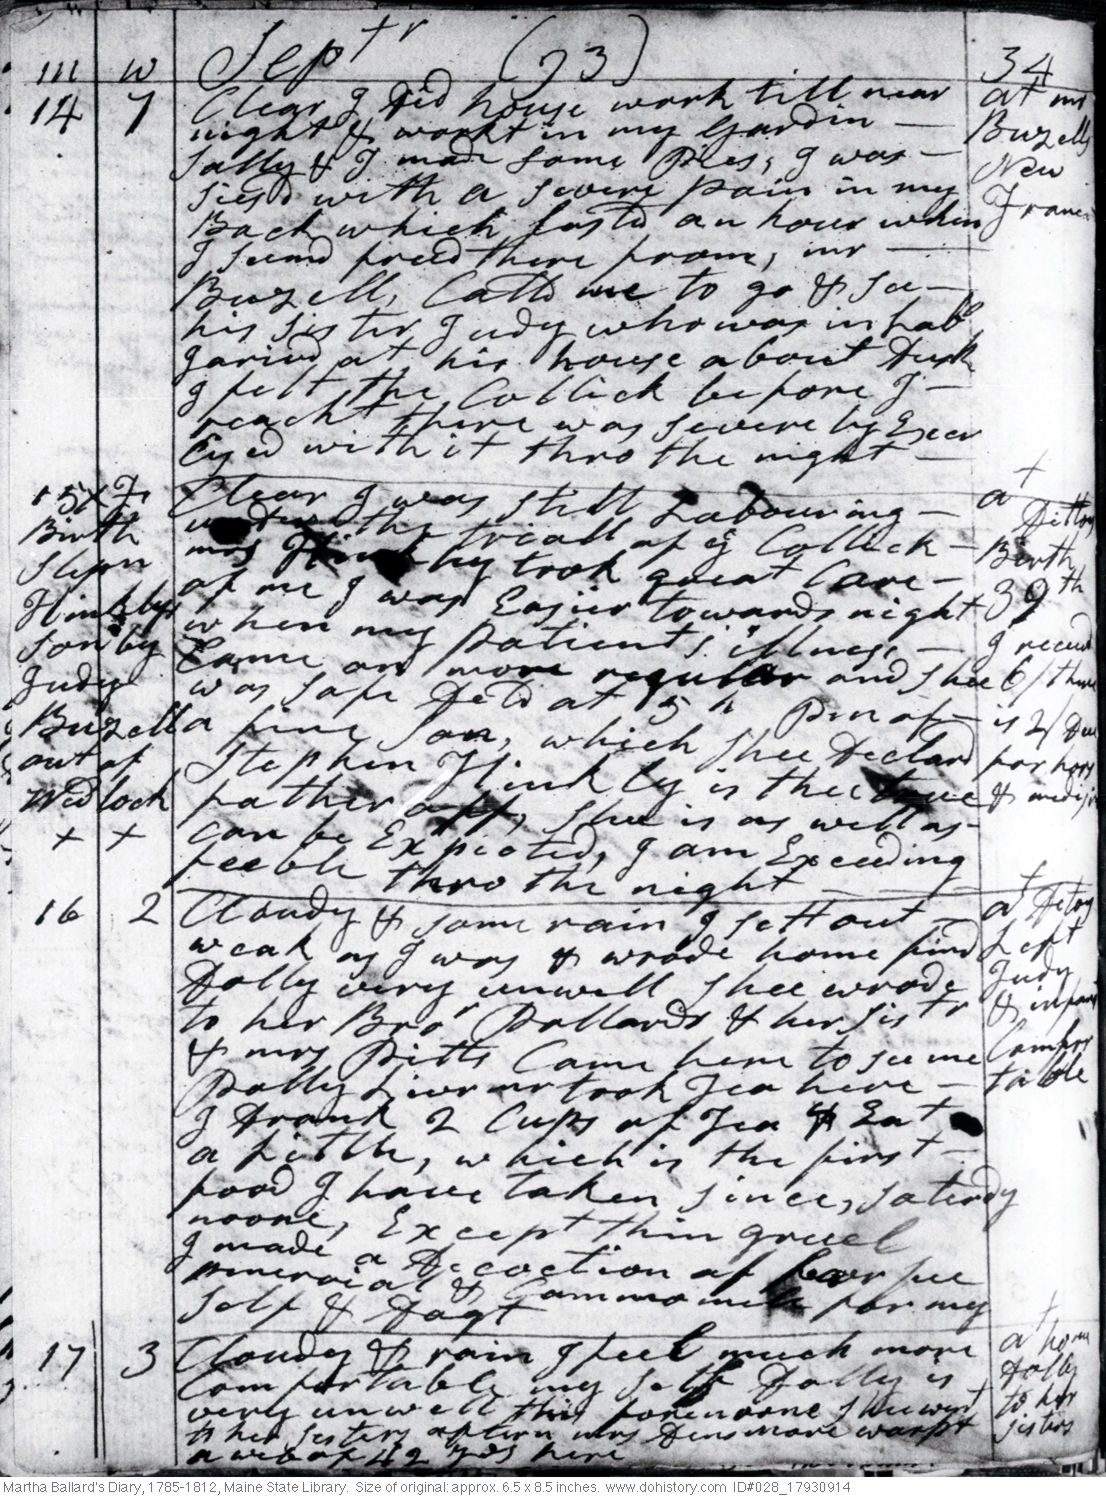 m w Sept r (93) 34
14 7 Clear I Did house work till near
night & workt in my Gardin
Sally & I made some Pies, I was
siesd with a severe pain in my
Back which lastd an hour when
I seemd freed there from, mr
Buzell, Calld me to go & see
his sister Judy who was in Labr
I arivd at his house about Dusk
I felt the Collick before I
reacht there was severe ly Exer
Cised with it thro the night
at mr
Buzells
New
France
15 x Fr Clear I was still Labouring
under the triall of ye Collick
mrs Hinkley took great Care
of me I was Easier towards night
when my patients illness
Came on more regular and shee
was safe Deld at 15 h Pm of
a fine son, which shee Declard
Stephen Hinkly is thee true
father off, shee is as well as
can be Expected, I am Exceeding
feeble thro the night
Birth
Stepn
Hinklys
son by
Judy
Buzell
out of
Wedlock
+ +
+
at
Ditto
Birth
39th
I receivd
6/ there
is 2/ Due
for hors
& medisin
16 2 Cloudy & some rain I sett out
weak as I was & wrode home find
Dolly very unwell shee wrode
to her Bror Pollards & her sistr
& mrs Pitts Came here to see me
Polly Livermr took Tea here
I Drank 2 Cups of Tea & Eat
a Little, which is the first
food I have taken since, saterdy
noone, Except thin gruel
I made a Decoction of
& Cammomile for my
self & Dagt
+
at Ditoy
Left
Judy
& infant
Comfor
table
17 3 Cloudy & rain I feel much more
Comfortable my self Dolly is
very unwell this forenoone shee went
to her sisters aftern mrs Densmore warpt
a web of 42 yds here
+
at home
Dolly
to her
sisters
Martha Ballard's Diary, 1785-1812, Maine State Library. Size of original: approx. 6.5 x 8.5 inches. www.dohistory.com ID#028_17930914